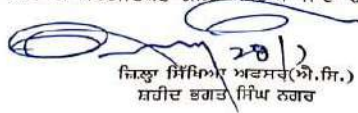 28/7
ਜ਼ਿਲ੍ਹਾ ਸਿੱਖਿਆ ਅਫਸਰ(ਐ.ਸਿ.)
ਸ਼ਹੀਦ ਭਗਤ ਸਿੰਘ ਨਗਰ